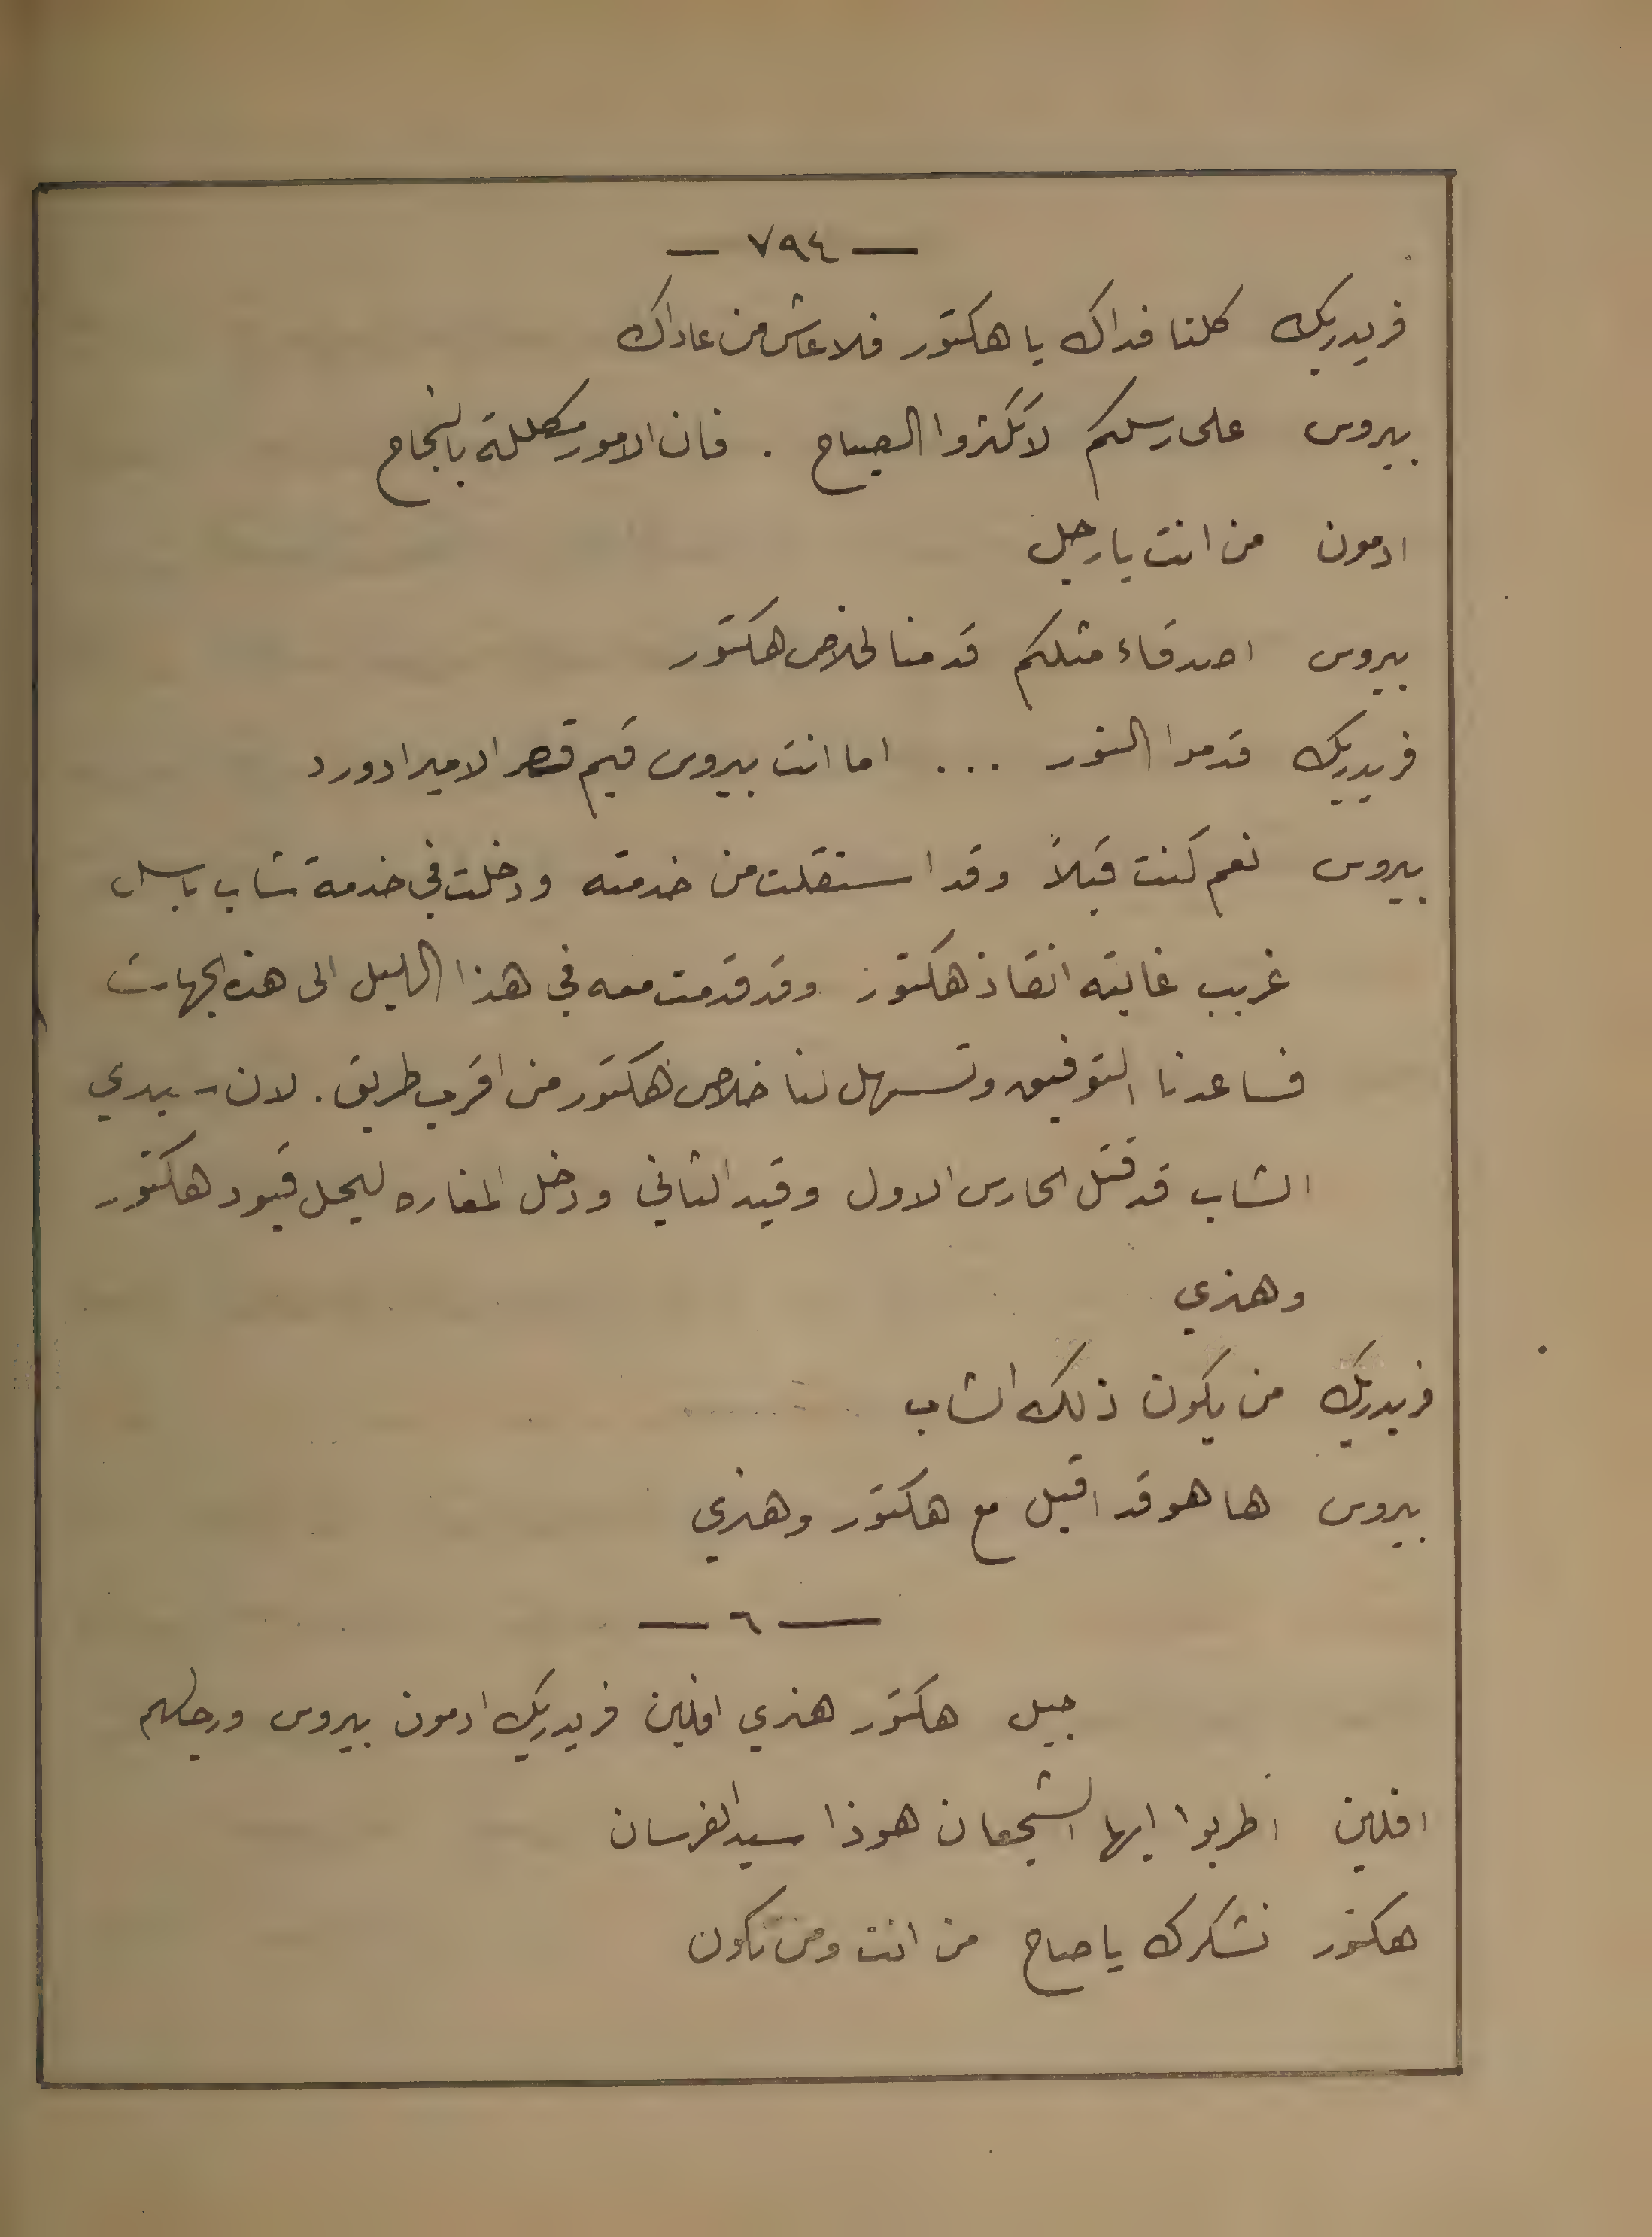 — ٧٩٤ —
فريدريك كلنا فداك يا هكتور فلا عاش من عاداك
بيروس على رسلكم لا تكثروا الصياح . فان الامور مكللة بالنجاح
ادمون من انت يا رجل
بيروس اصدقاء مثلكم قدمنا لخلاص هكتور
فريدريك قدموا النور ... اما انت بيروس قيم قصر الامير ادورد
بيروس نعم كنت قبلاً وقد استقلت من خدمته ودخلت في خدمة شاب باسل
غريب غايته انقاذ هكتور وقد قدمت معه في هذا الليل الى هذه الجهات
فساعدنا التوفيق وتسهل لنا خلاص هكتور من اقرب طريق . لان سيدي
الشاب قد قتل الحارس الاول وقيد الثاني ودخل المغاره ليحل قيود هكتور
وهنري
فريدريك من يكون ذلك الشاب
بيروس ها هو قد اقبل مع هكتور وهنري
— ٦ —
جبل هكتور هنري افلين فريدريك ادمون بيروس ورجالهم
افلين اطربوا ايها الشجعان هوذا سيد الفرسان
هكتور نشكرك يا صاح من انت ومن تكون